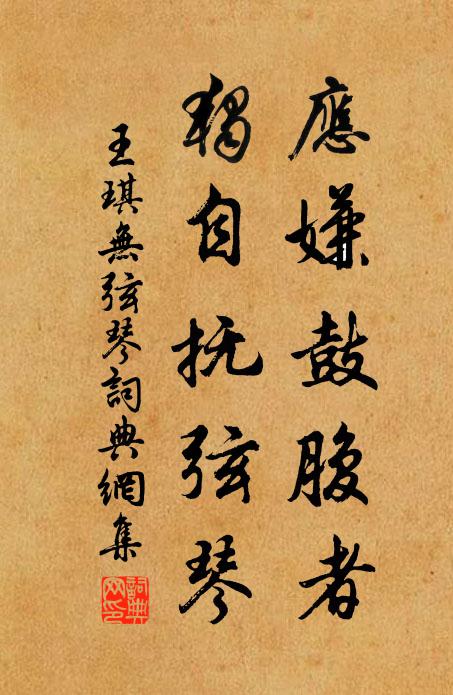 應嫌鼓腹者
獨自抚弦琴
王琪無弦琴詞典網集
詞典
网印